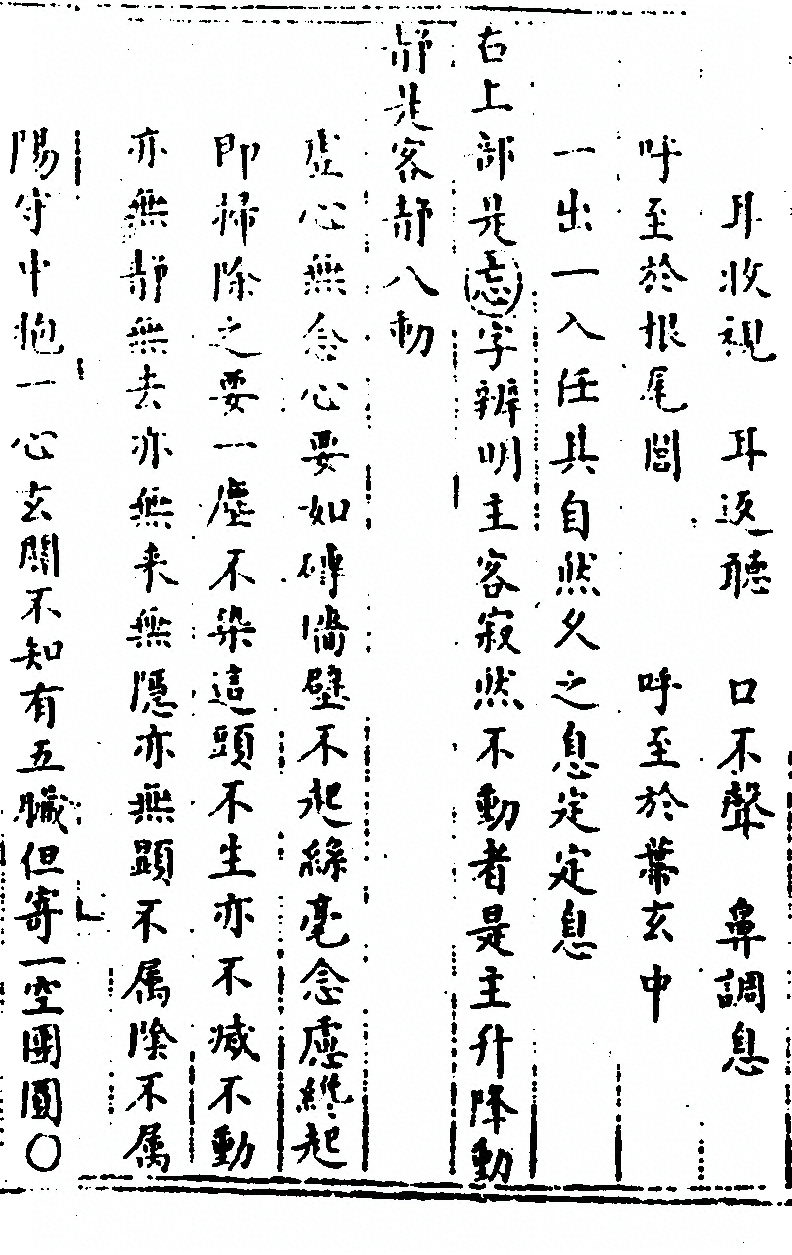 耳收視　耳返聽　口不聲　鼻調息
呼至於根尾閭　　　呼至於蒂玄中
一出一入任其自然久之息定定息
右上部是忘字辨明主客寂然不動者是主升降動
静是客静八動
虛心無念心要如磚墻壁不起絲毫念慮纔起
即掃除之要一塵不染這頭不生亦不減不動
亦無静無去亦無来無隱亦無顕不属陰不属
陽守中抱一心玄關不知有五臟但寄一空團圓〇